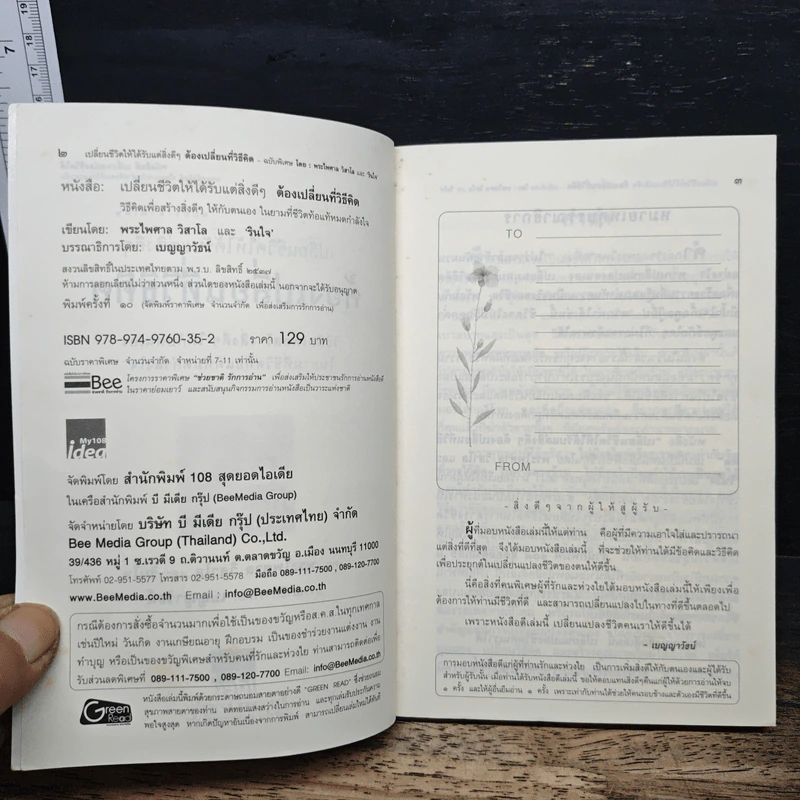 ๒ เปลี่ยนชีวิตให้ได้รับแต่สิ่งดีๆ ต้องเปลี่ยนที่วิธีคิด - ฉบับพิเศษ โดย : พระไพศาล วิสาโล และ รินใจ
หนังสือ: เปลี่ยนชีวิตให้ได้รับแต่สิ่งดีๆ ต้องเปลี่ยนที่วิธีคิด
วิธีคิดเพื่อสร้างสิ่งดีๆ ให้กับตนเอง ในยามที่ชีวิตท้อแท้หมดกำลังใจ
เขียนโดย: พระไพศาล วิสาโล และ 'รินใจ'
บรรณาธิการโดย: เบญญาวัธน์
สงวนลิขสิทธิ์ในประเทศไทยตาม พ.ร.บ. ลิขสิทธิ์ ๒๕๓๗
ห้ามการลอกเลียนไม่ว่าส่วนหนึ่ง ส่วนใดของหนังสือเล่มนี้ นอกจากจะได้รับอนุญาต
พิมพ์ครั้งที่ ๑๐ (จัดพิมพ์ราคาพิเศษ จำนวนจำกัด เพื่อส่งเสริมการรักการอ่าน)
ISBN 978-974-9760-35-2 ราคา 129 บาท
ฉบับราคาพิเศษ จำนวนจำกัด จำหน่ายที่ 7-11 เท่านั้น
Bee โครงการราคาพิเศษ "ช่วยชาติ รักการอ่าน" เพื่อส่งเสริมให้ประชาชนรักการอ่านหนังสือดี
ในราคาย่อมเยาว์ และสนับสนุนกิจกรรมการอ่านหนังสือเป็นวาระแห่งชาติ
My108
idea
จัดพิมพ์โดย สำนักพิมพ์ 108 สุดยอดไอเดีย
ในเครือสำนักพิมพ์ บี มีเดีย กรุ๊ป (BeeMedia Group)
จัดจำหน่ายโดย บริษัท บี มีเดีย กรุ๊ป (ประเทศไทย) จำกัด
Bee Media Group (Thailand) Co.,Ltd.
39/436 หมู่ 1 ซ.เรวดี 9 ถ.ติวานนท์ ต.ตลาดขวัญ อ.เมือง นนทบุรี 11000
โทรศัพท์ 02-951-5577 โทรสาร 02-951-5578 มือถือ 089-111-7500, 089-120-7700
www.BeeMedia.co.th Email : info@BeeMedia.co.th
กรณีต้องการสั่งซื้อจำนวนมากเพื่อใช้เป็นของขวัญหรือส.ค.ส.ในทุกเทศกาล
เช่นปีใหม่ วันเกิด งานเกษียณอายุ ฝึกอบรม เป็นของชำร่วยงานแต่งงาน งาน
ทำบุญ หรือเป็นของขวัญพิเศษสำหรับคนที่รักและห่วงใย ท่านสามารถติดต่อเพื่อ
รับส่วนลดพิเศษที่ 089-111-7500 , 089-120-7700 Email: info@BeeMedia.co.th
Green
Read
หนังสือเล่มนี้พิมพ์ด้วยกระดาษถนอมสายตาอย่างดี "GREEN READ" ซึ่งช่วยถนอม
สุขภาพสายตาของท่าน ลดทอนแสงสว่างในการอ่าน และทุกเล่มรับประกันความ
พอใจสูงสุด หากเกิดปัญหาอันเนื่องจากการพิมพ์ สามารถเปลี่ยนเล่มใหม่ได้ทันที
๓
TO
FROM
- สิ่งดีๆ จากผู้ให้สู่ผู้รับ -
ผู้ที่มอบหนังสือเล่มนี้ให้แด่ท่าน คือผู้ที่มีความเอาใจใส่และปรารถนา
แต่สิ่งที่ดีที่สุด จึงได้มอบหนังสือเล่มนี้ ที่จะช่วยให้ท่านได้มีข้อคิดและวิธีคิด
เพื่อประยุกต์ในเปลี่ยนแปลงชีวิตของตนให้ดีขึ้น
นี่คือสิ่งที่คนพิเศษผู้ที่รักและห่วงใยได้มอบหนังสือเล่มนี้ให้เพียงเพื่อ
ต้องการให้ท่านมีชีวิตที่ดี และสามารถเปลี่ยนแปลงไปในทางที่ดีขึ้นตลอดไป
เพราะหนังสือดีเล่มนี้ เปลี่ยนแปลงชีวิตคนเราให้ดีขึ้นได้
เบญญาวัธน์
การมอบหนังสือดีแก่ผู้ที่ท่านรักและห่วงใย เป็นการเพิ่มสิ่งดีให้กับตนเองและผู้ได้รับ
สำหรับผู้รับนั้น เมื่อท่านได้รับหนังสือเล่มนี้ ขอให้ตอบแทนสิ่งดีๆคืนแก่ผู้ให้ด้วยการอ่านให้จบ
๑ ครั้ง และให้ผู้อื่นยืมอ่าน ๑ ครั้ง เพราะเท่ากับท่านได้ช่วยให้คนรอบข้างและตัวเองมีชีวิตที่ดีขึ้น